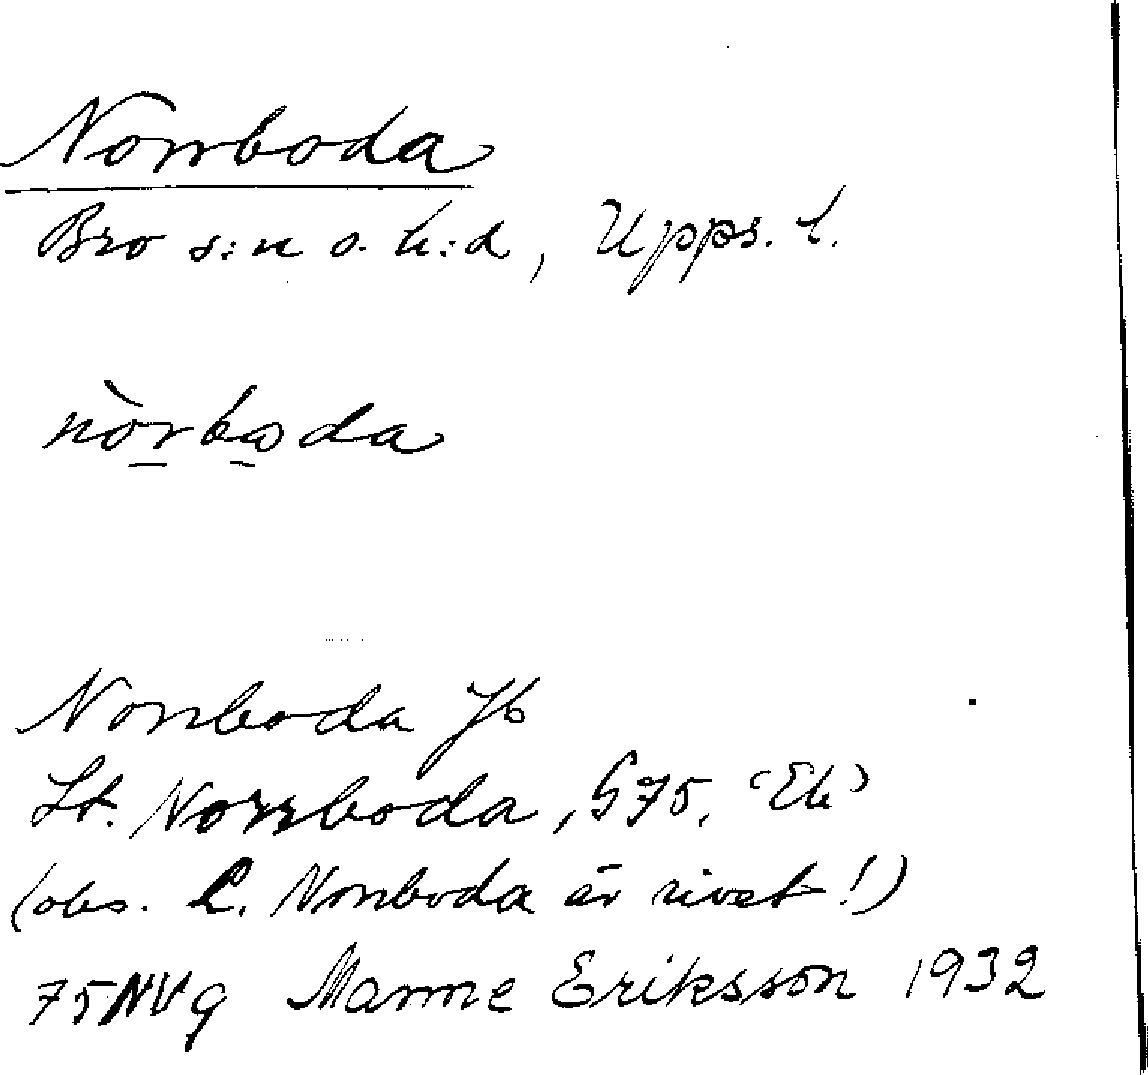 Norrboda
Bro s:n o. h:d, Upps. l.
nòrboda
Norrboda Jb
St. Norrboda, G75, 'Ek'
(obs. L. Norrboda är rivet!)
75NVg Manne Eriksson 1932